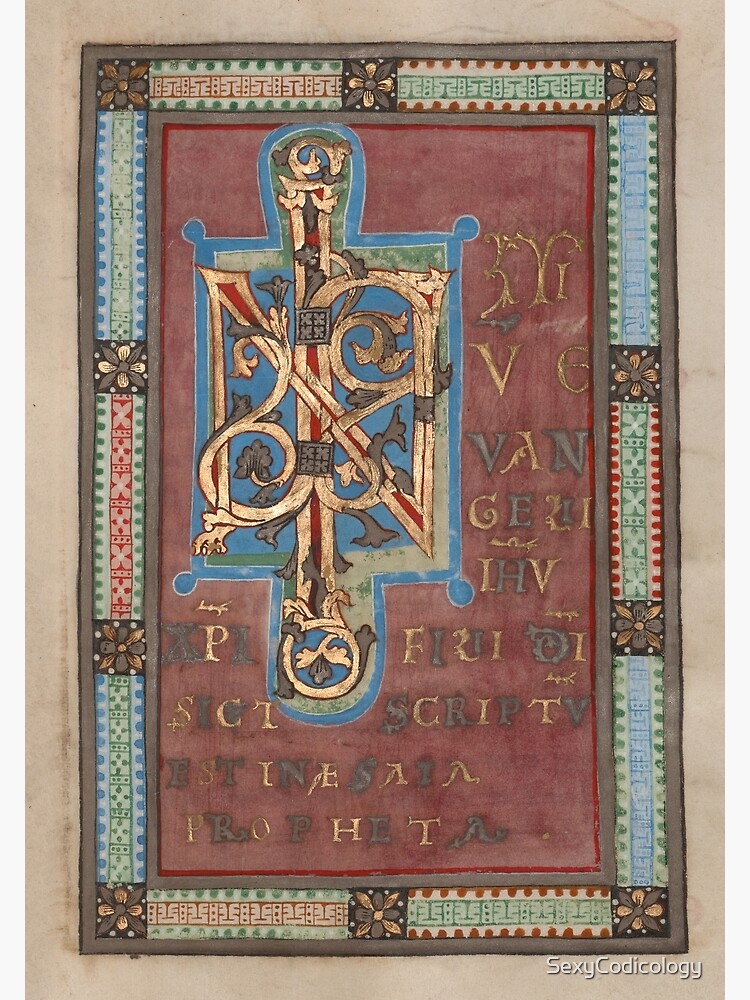 IN
V E
VAN
GELII
IHV
XPI FILII DI
SICT SCRIPTV
EST IN ÆSAIA
PROPHETA .
SexyCodicology